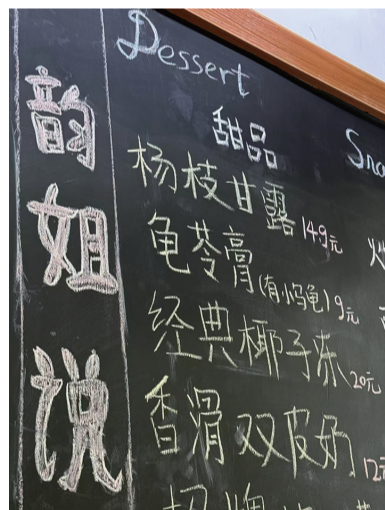 韵姐说
Dessert
甜品
杨枝甘露 14.9元
龟苓膏(有小乌龟) 9元
经典椰子冻 20元
香滑双皮奶 12元
招牌